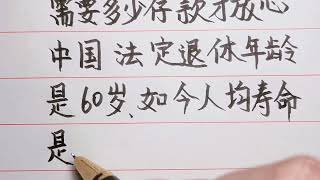 需要多少存款才放心
中国 法定退休年龄
是60岁、如今人均寿命
是